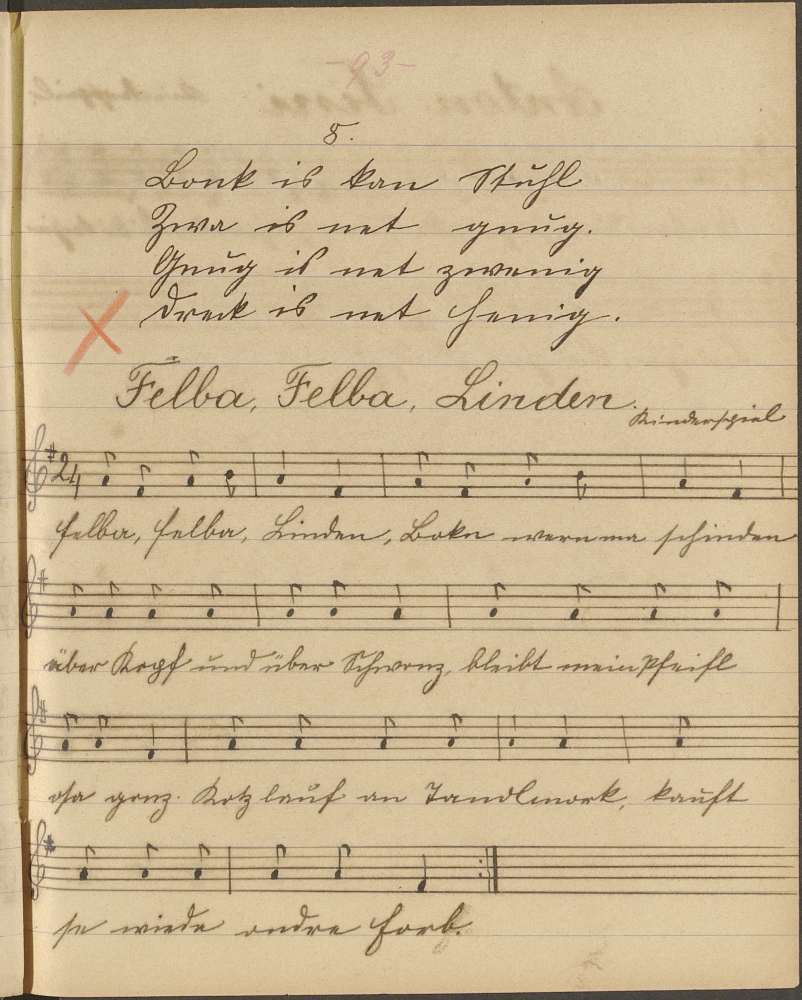 -93-
8.
Bonk is kan Stuhl
Zwa is net gnug.
Gnug is net zwenig
Dreck is net henig.
Felba, Felba, Linden.
Kinderspiel
24
Felba, Felba, Linden, Bokn wern ma schinden
über Kopf und über Schwonz, bleibt mein Pfeifl
gonz. Kotz lauf an Tandlmork, kauft
se wiede ondre Forb.